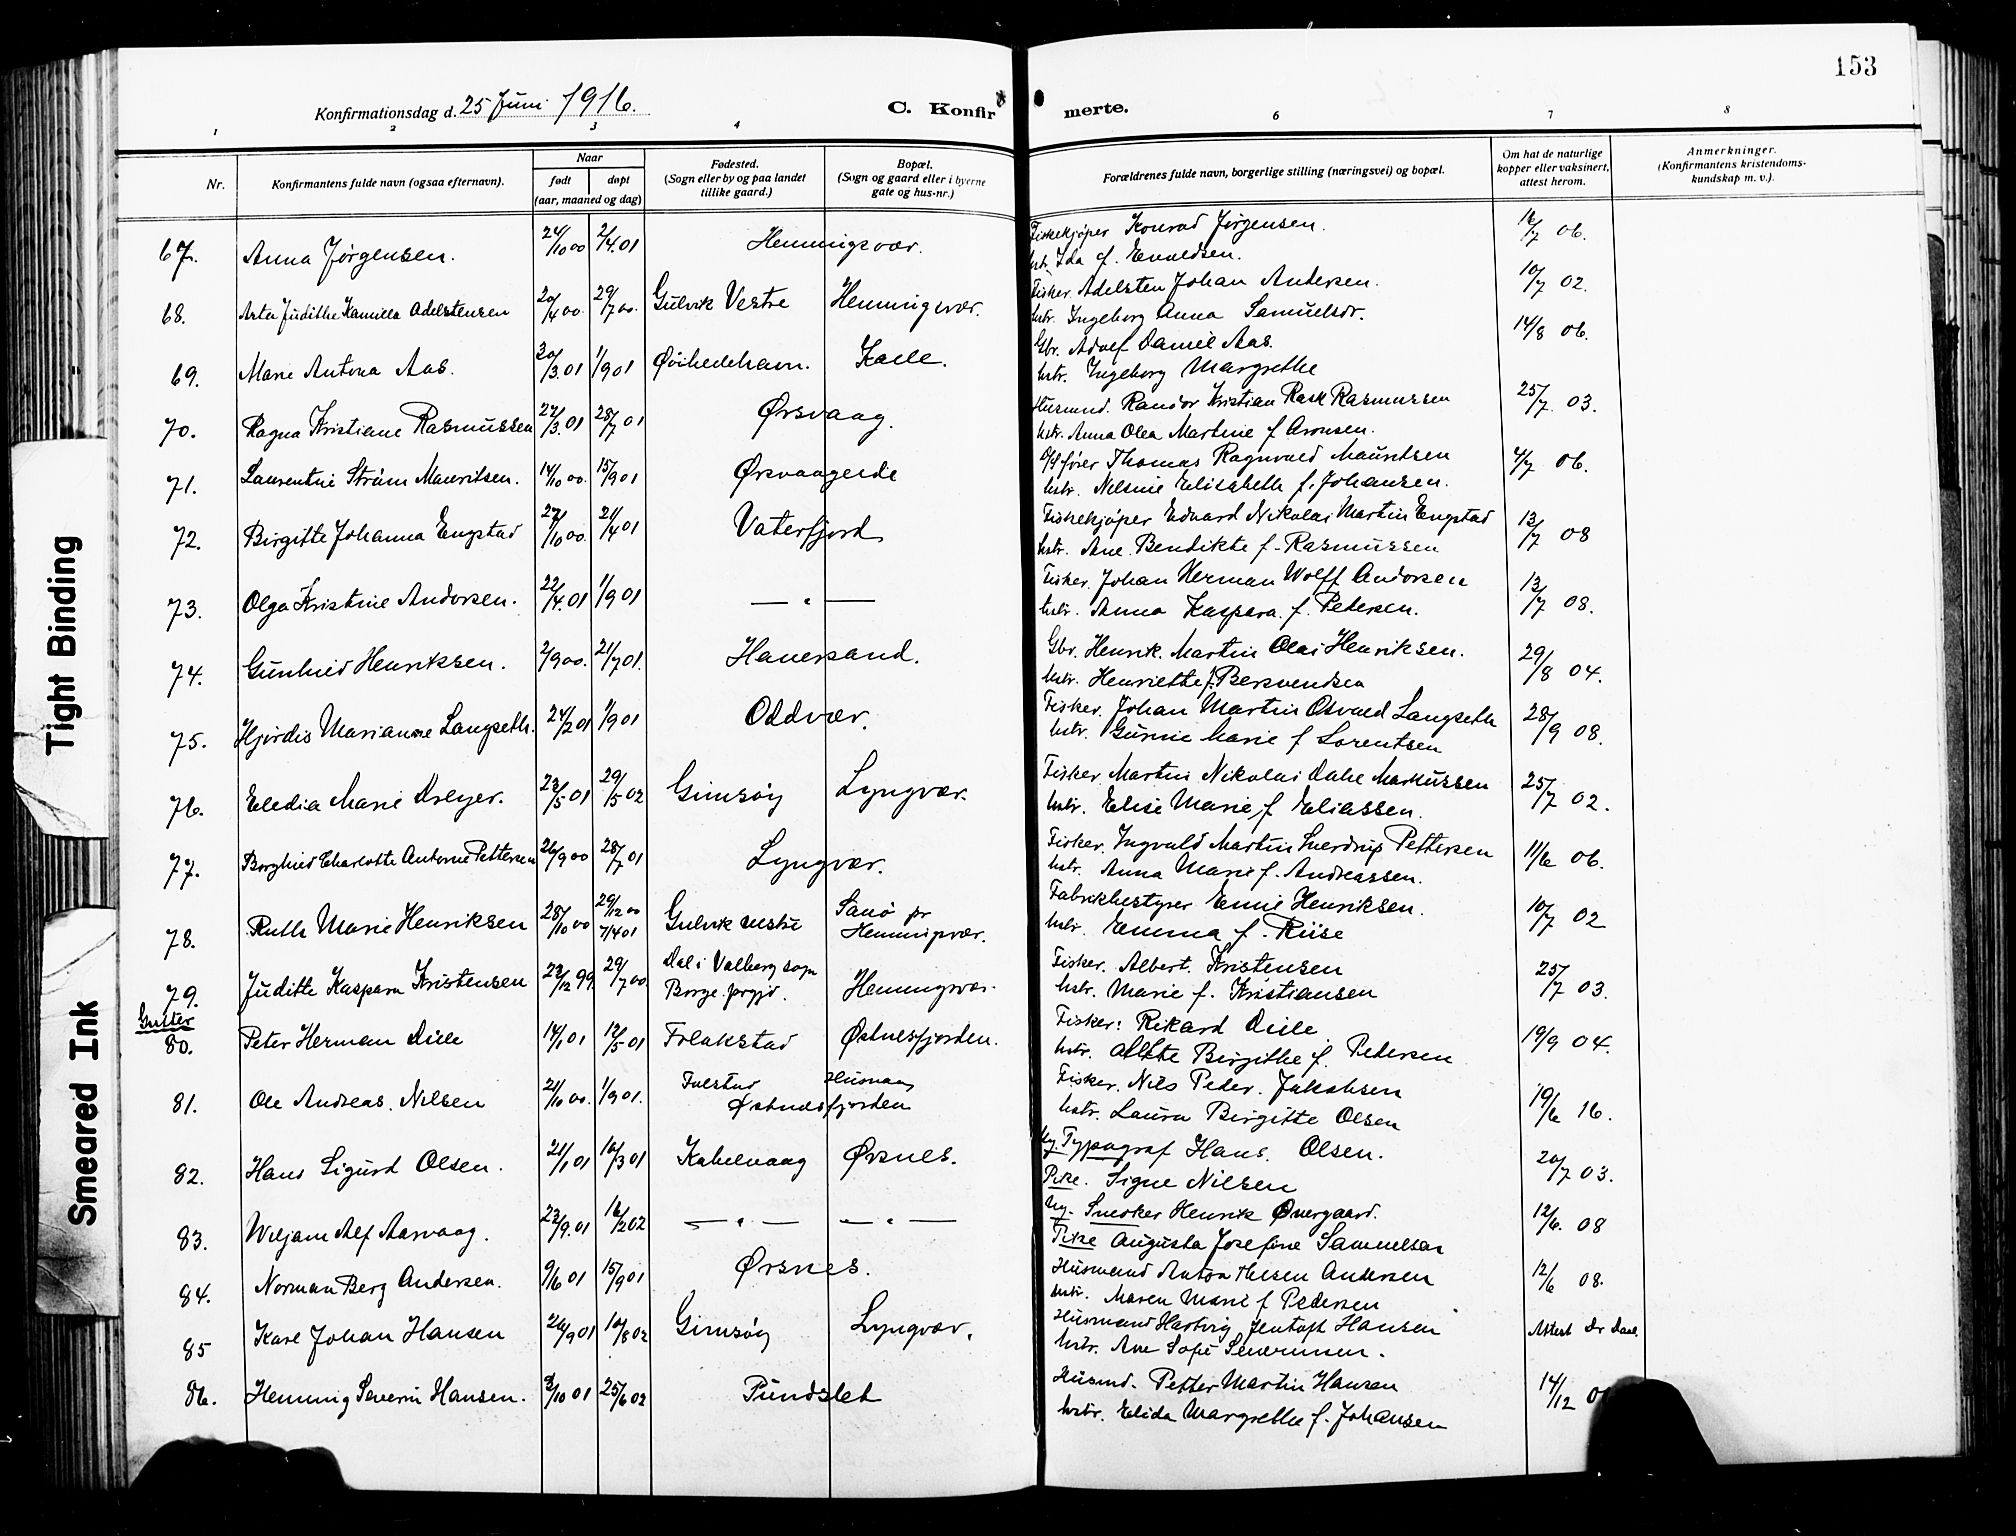 153
Konfirmationsdag d. 25 Juni 1916.
C. Konfirmerte.
1 2 3 4 6 7 8
Nr.
Konfirmantens fulde navn (ogsaa efternavn).
Naar
født døpt
(aar, maaned og dag)
Fødested.
(Sogn eller by og paa landet
tillike gaard.)
Bopæl.
(Sogn og gaard eller i byerne
gate og hus-nr.)
Forældrenes fulde navn, borgerlige stilling (næringsvei) og bopæl.
Om hat de naturlige
kopper eller vaksinert,
attest herom.
Anmerkninger.
(Konfirmantens kristendoms-
kundskap m. v.).
67. Anna Jørgensen. 24/10 00 2/4.01 Henningsvær. Fiskekjøper Konrad Jørgensen. 16/7 06.
hstr. Ida f. Evaldsen.
68. Asta Judithe Kamilla Adelstensen 20/4 00. 29/7 00. Gulvik Vestre Henningsvær. Fisker. Adelsten Johan Andersen. 10/7 02.
hstr. Ingeborg Anna Samuelsdr.
69. Marie Antona Aas. 30/3.01 1/9 01 Kalle. Gbr. Adolf Daniel Aas. 14/8 06.
hstr. Ingeborg Margrethe
70. Ragna Kristiane Rasmussen 27/3.01 28/7 01 Ørsvaag. Husmand. Randor Kristian Rask Rasmussen 25/7 03.
hstr. Anna Olea Martine f Aronsen.
71. Laurentine Strøm Mauritsen. 14/10 00. 15/9 01 Ørsvaageide Thomas Ragnvald Mauritsen 4/7 06.
hstr. Nelsine Elisabeth f. Johansen.
72. Birgitte Johanna Engstad 27/10 00. 21/4 01 Vaterfjord Fiskekjøper Edvard Nikolai Martin Engstad 13/7 08
hstr. Ane Bendikte f. Rasmussen
73. Olga Kristine Andorsen. 22/4.01 1/9 01 — " — Fisker. Johan Herman Wolff Andorsen 13/7 08.
hstr. Anna Kaspara f. Pedersen.
74. Gunhild Henriksen. 2/9 00. 21/7 01. Hanersand. Gbr. Henrik Martin Olai Henriksen. 29/8 04.
hstr. Henriette f. Bersvendsen
75. Hjørdis Marianne Langseth. 24/2 01 1/9 01 Oddvær. Fisker. Johan Martin Osvald Langseth 28/9 08.
hstr. Gurine Marie f Lorentsen
76. Eledia Marie Dreyer. 23/5 01 29/5 02 Gimsøy Lyngvær. Fisker Martin Nikolai Dahl Markussen 25/7 02.
hstr. Elise Marie f Eliassen.
77. Borghild Charlotte Antonie Pettersen 26/9 00 28/7 01 Lyngvær. Fisker. Ingvald Martin Sverdrup Pettersen 11/6 06.
hstr. Anna Marie f. Andreassen.
78. Ruth Marie Henriksen 28/10 00 29/12 00 7/4 01 Gulvik vestre Sanø pr Henningsvær. Fabrikbestyrer Emil Henriksen. 10/7 02
hstr. Emma f. Riise
79. Juditte Kaspara Kristensen 23/12 99. 29/7 00. Dal i Valberg sogn Borge prgjd. Henningsvær. Fisker. Albert. Kristensen 25/7 03.
hstr. Marie f. Kristiansen
Gutter
80. Peter Herman Diile 14/1 01 12/5 01 Flakstad Østnesfjorden. Fisker: Rikard Diile 19/9 04.
hstr. Birgithe f. Pedersen
81. Ole Andreas. Nilsen 21/10 00. 1/9 01. Østnesfjorden Fisker. Nils Peder. Jakobsen 19/6 16.
hstr. Laura Birgitte Olsen
82. Hans Sigurd Olsen. 21/1 01 10/3 01 Kabelvaag Ørsnes. Ug. Typograf Hans. Olsen. 20/7 03.
Pike. Signe Nilsen
83. Wiljam Alf Aarvaag. 23/9.01 16/2 02 — " — — " — Ug. Snedker Henrik Øvergaard. 12/6. 08
Pike Augusta Josefine Samuelsen
84. Norman Berg Andersen. 9/6 01 15/9 01 Ørsnes. Husmand Anton Thesen Andersen 12/6 08.
hstr. Maren Marie f Pedersen
85 Karl Johan Hansen 26/9 01 10/8 02 Gimsøy Lyngvær. Husmand Hartvig Jentoft Hansen Attest Dr Daae.
hstr. Ane Sofie Severinsen.
86. Henning Severin Hansen. 3/10 01 25/6 02 Pundslet Husmd. Petter Martin Hansen 14/12
hstr. Elida Margrethe f. Johansen
Tight Binding
Smeared Ink